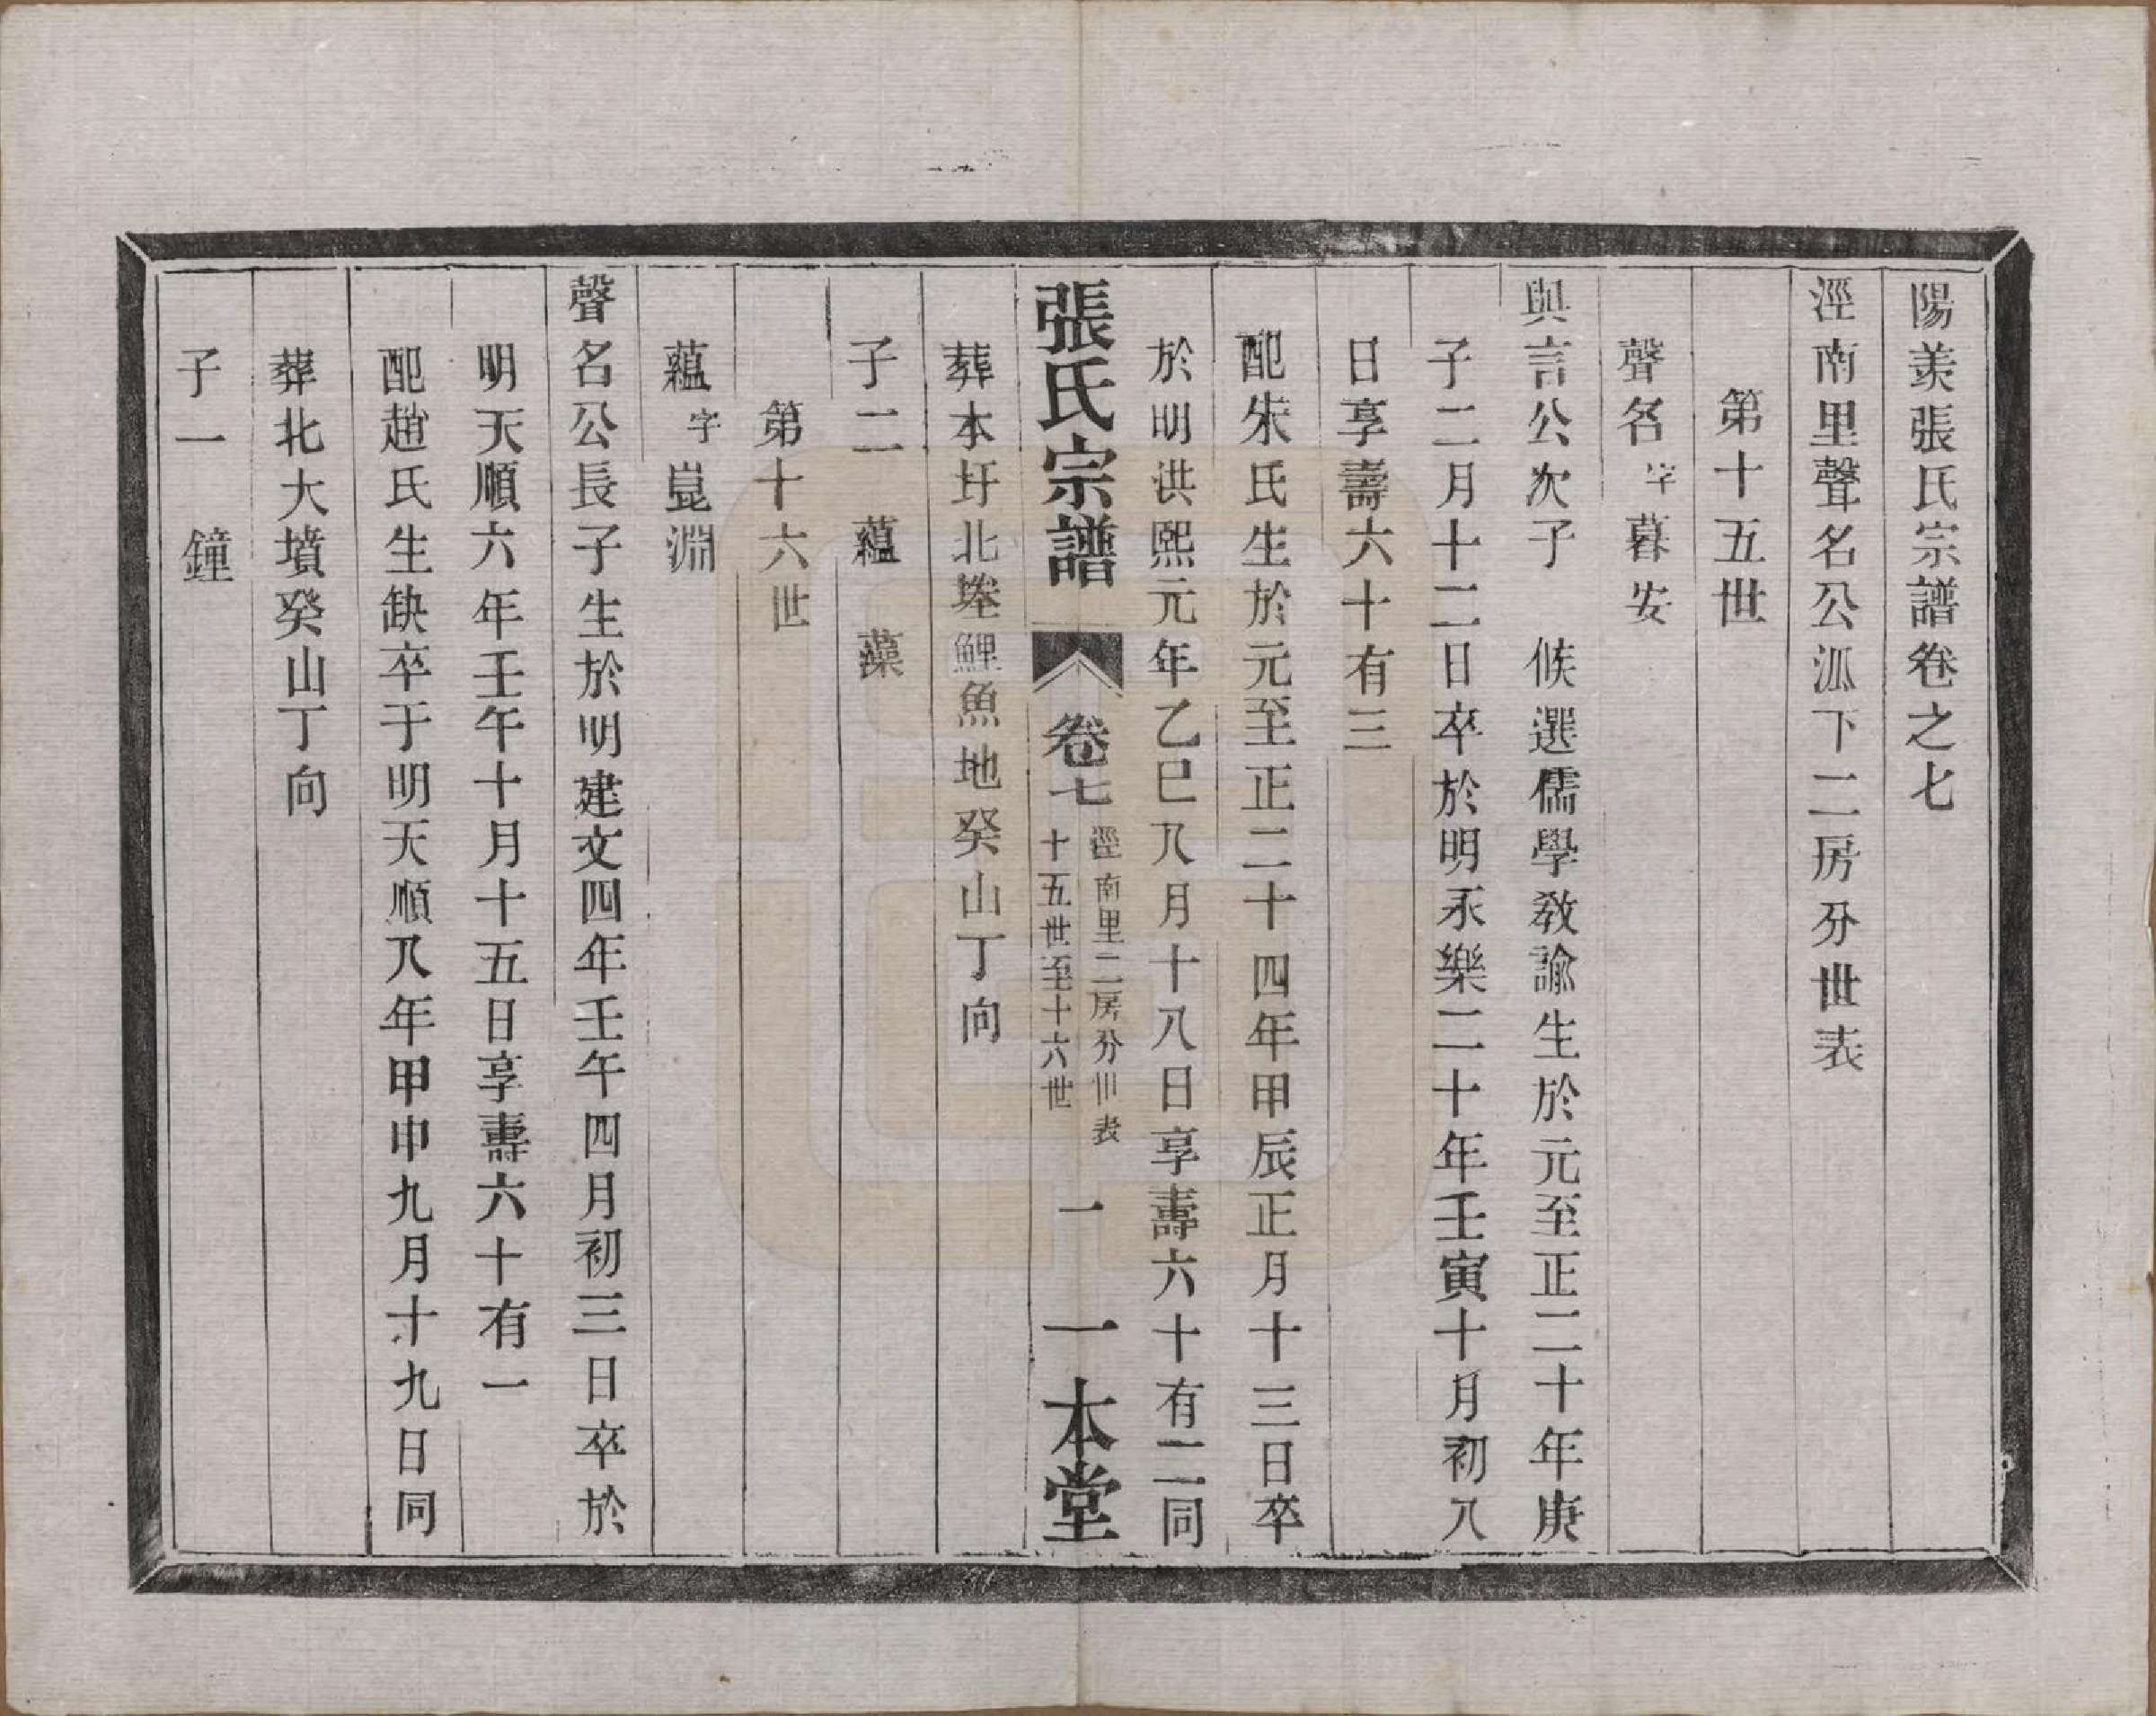 陽羨張氏宗譜卷之七
涇南里聲名公派下二房分世表
第十五世
聲名字暮安
與言公次子　候選儒學教諭生於元至正二十年庚
子二月十二日卒於明永樂二十年壬寅十月初八
日享壽六十有三
配朱氏生於元至正二十四年甲辰正月十三日卒
於明洪熙元年乙巳八月十八日享壽六十有二同
張氏宗譜　卷七　涇南里二房分世表
十五世至十六世　一　一本堂
葬本圩北墘鯉魚地癸山丁向
子二　蘊　藻
第十六世
蘊字崑淵
聲名公長子生於明建文四年壬午四月初三日卒於
明天順六年壬午十月十五日享壽六十有一
配趙氏生缺卒于明天順八年甲申九月十九日同
葬北大墳癸山丁向
子一　鐘